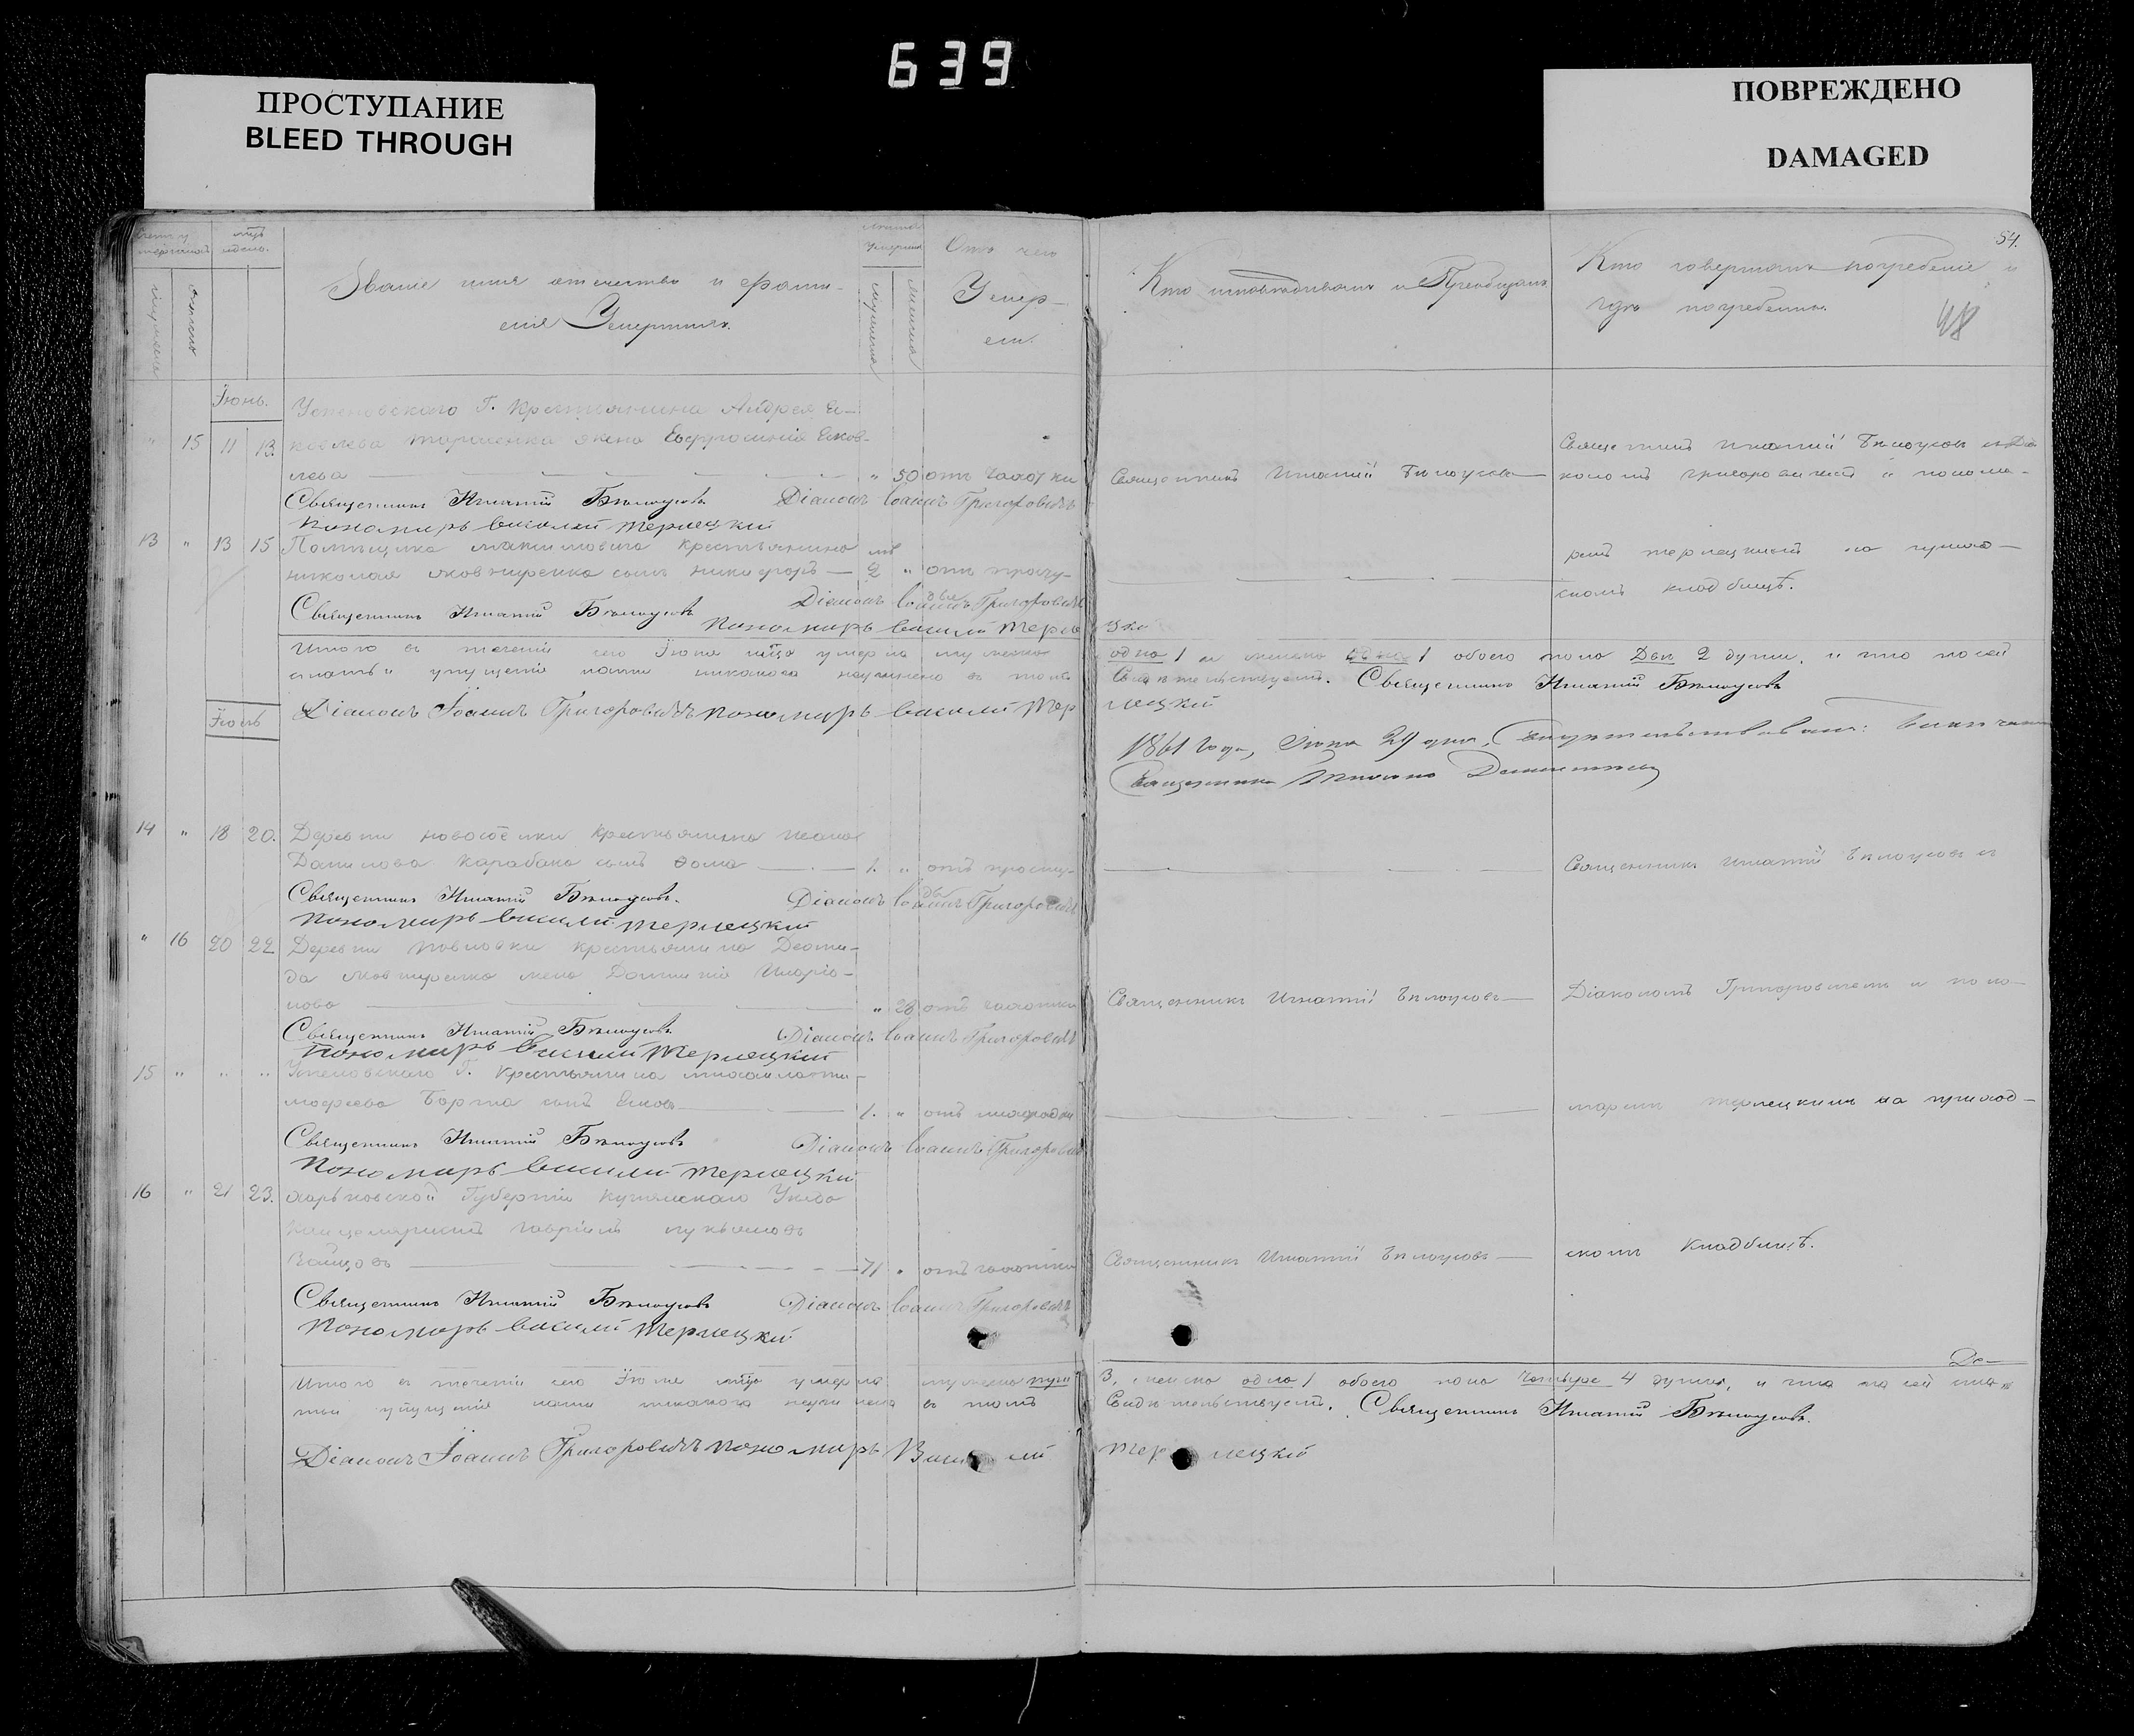 639
ПРОСТУПАНИЕ
BLEED THROUGH
ПОВРЕЖДЕНО
DAMAGED
54.
48
Званіе имя отечество и фами-
лія Умершихъ.
Отъ чего
Умер-
ли.
Кто исповѣдывалъ и Пріобщалъ
Кто совершалъ погребеніе и
гдѣ погребены.
Іюнь.
Успеновскаго Г. Крестьянина Андрея Я-
15 11 13 ковлева жена Евфросинія Яков-
лева " 50 отъ чахотки
Священникъ Игнатій Бѣлоусовъ
Священникъ Игнатій Бѣлоусовъ съ Діа-
кономъ Григоровичемъ и понома-
Священникъ Игнатій Бѣлоусовъ Діаконъ Іоаннъ Григоровичъ
Пономарь Василій Терлецкій
13 " 13 15 Помѣщика Максимовича крестьянина
Николая сынъ Никифоръ 2 " отъ просту-
ды
ремъ Терлецкимъ на приход-
скомъ кладбищѣ.
Священникъ Игнатій Бѣлоусовъ Діаконъ Іоаннъ Григоровичъ
Пономарь Василій Терле цкій
Итого въ теченіи сего Іюня м-ца умерло мужеска одно 1 и женска одна 1 обоего пола Двѣ 2 души, и что по сей
статьи упущенія нами никакого неучинено въ томъ Свидѣтельствуемъ. Священникъ Игнатій Бѣлоусовъ
Діаконъ Іоаннъ Григоровичъ Пономарь Василій Тер лецкій
Іюль
1861 года, Іюня 29 дня, Свидѣтельствовалъ:
Священникъ
14 " 18 20. Деревни Новосёлки крестьянина Ивана
Данилова Карабана сынъ Ѳома 1. " отъ просту-
ды
Священникъ Игнатій Бѣлоусовъ съ
Священникъ Игнатій Бѣлоусовъ. Діаконъ Іоаннъ Григоровичъ
Пономарь Василій Терлецкій
" 16 20 22 Деревни Павловки крестьянина Деоми-
да жена Домникія Иларіо-
нова " 28 отъ чахотки
Священникъ Игнатій Бѣлоусовъ
Діакономъ Григоровичемъ и поно-
Священникъ Игнатій Бѣлоусовъ Діаконъ Іоаннъ Григоровичъ
Пономарь Василій Терлецкій
15 " " " Успеновскаго Г. Крестьянина Михаила Ти-
мофеева сынъ Яковъ 1. " отъ
маремъ Терлецкимъ на приход-
Священникъ Игнатій Бѣлоусовъ Діаконъ Іоаннъ Григоровичъ
Пономарь Василій Терлецкій
16 " 21 23. Харьковской Губерніи Купянскаго Уѣзда
Канцеляристъ Гавріилъ Лукьяновъ
71 " отъ чахотки
Священникъ Игнатій Бѣлоусовъ
скомъ Кладбищѣ.
Священникъ Игнатій Бѣлоусовъ Діаконъ Іоаннъ Григоровичъ
Пономарь Василій Терлецкій
Итого въ теченіи сего Іюля м-ца умерло мужеска три 3, женска одна 1 обоего пола Четыре 4 души, и что по сей ста-
тьи упущенія нами никакого неучинено въ томъ Свидѣтельствуемъ. Священникъ Игнатій Бѣлоусовъ.
Діаконъ Іоаннъ Григоровичъ Пономарь Василій Терлецкій